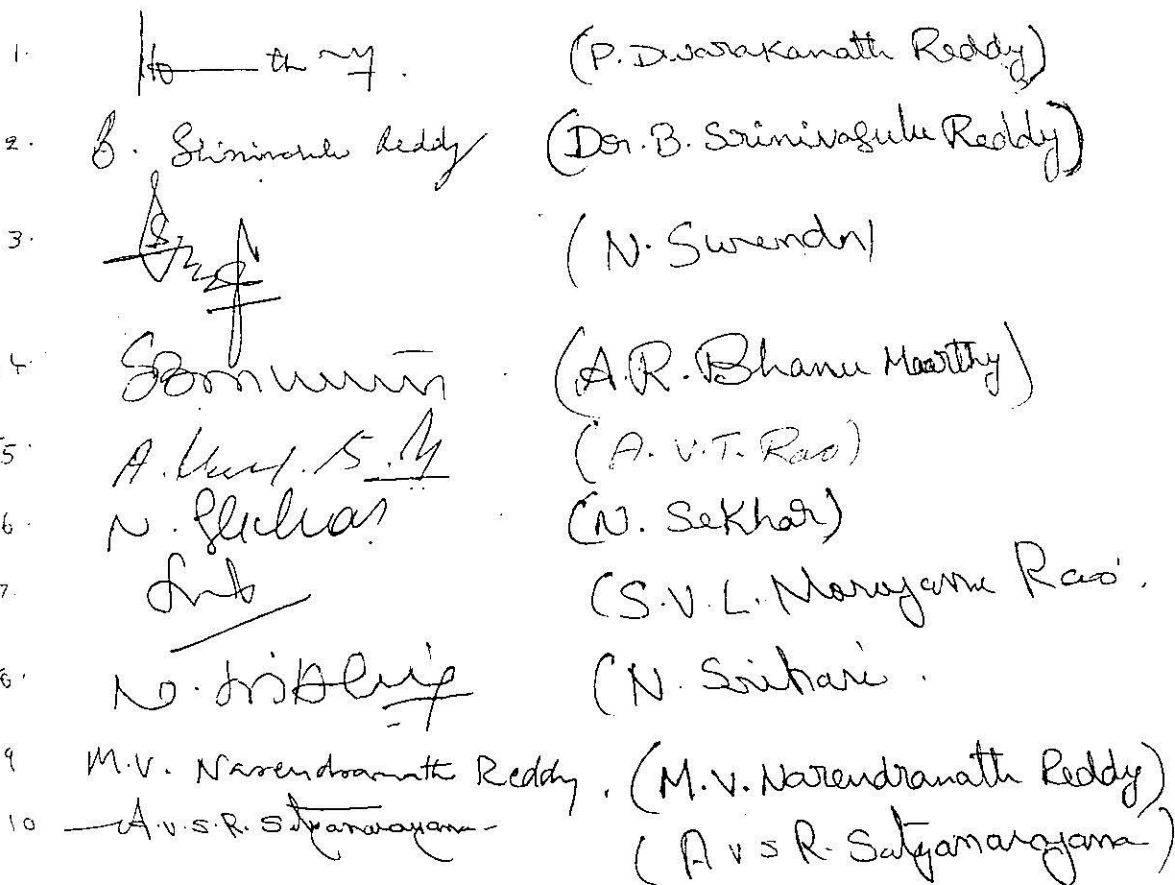 1. (P. Dwarakanath Reddy)
2. B. Srinivasulu Reddy (Dr. B. Srinivasulu Reddy)
3. (N. Surendra)
4. (A.R. Bhanu Moorthy)
5. (A. V. T. Rao)
6. N. Sekhar (N. Sekhar)
7. (S.V.L. Narayana Rao.
8. (N. Srihari.
9 M.V. Narendranath Reddy. (M.V. Narendranath Reddy)
10 A.V.S.R. Satyanarayana (A V S R. Satyanarayana)